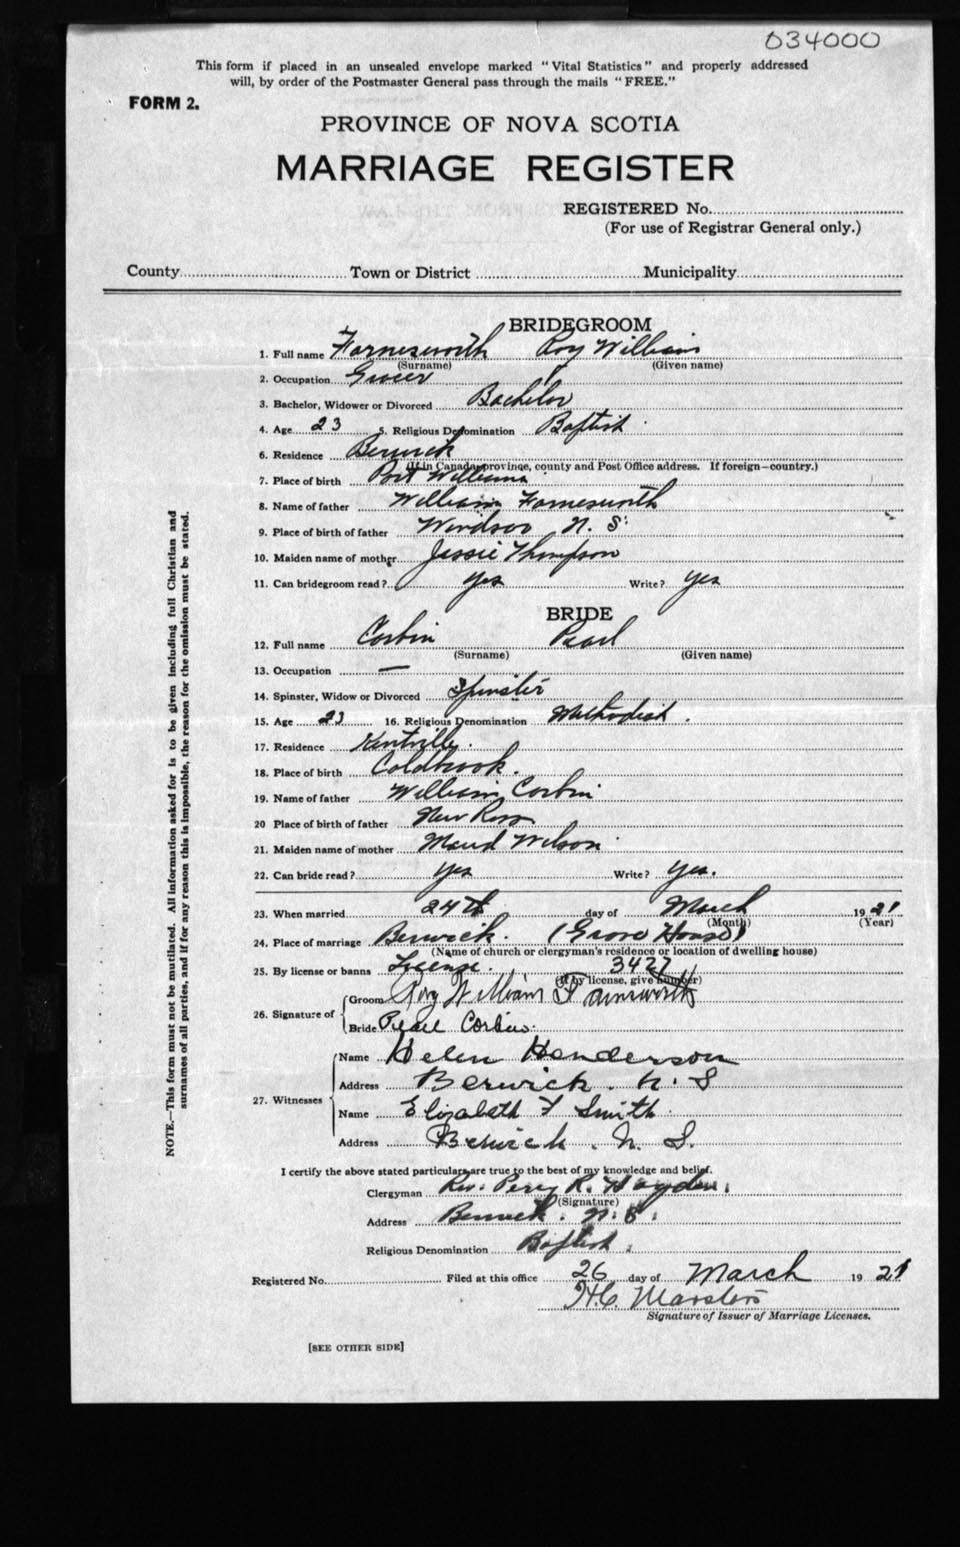 034000
This form if placed in an unsealed envelope marked "Vital Statistics" and properly addressed
will, by order of the Postmaster General pass through the mails "FREE."
FORM 2.
PROVINCE OF NOVA SCOTIA
MARRIAGE REGISTER
REGISTERED No.
(For use of Registrar General only.)
County Town or District Municipality
BRIDEGROOM
1. Full name Farnesworth Roy William
(Surname) (Given name)
2. Occupation Grocer
3. Bachelor, Widower or Divorced Bachelor
4. Age 23 5. Religious Denomination Baptist
6. Residence Berwick
(If in Canada, province, county and Post Office address. If foreign—country.)
7. Place of birth Port Williams
8. Name of father William Farnesworth
9. Place of birth of father Windsor N. S.
10. Maiden name of mother Jessie Thompson
11. Can bridegroom read? Yes Write? Yes
BRIDE
12. Full name Corbin Pearl
(Surname) (Given name)
13. Occupation —
14. Spinster, Widow or Divorced Spinster
15. Age 23 16. Religious Denomination Methodist.
17. Residence Kentville.
18. Place of birth Coldbrook.
19. Name of father William Corbin
20 Place of birth of father New Ross
21. Maiden name of mother Maud Wilson
22. Can bride read? Yes Write? Yes.
23. When married 24th day of March 1921
(Month) (Year)
24. Place of marriage Berwick. (Grove House)
(Name of church or clergyman's residence or location of dwelling house)
25. By license or banns License. 3427
(If by license, give number)
26. Signature of
Groom Roy William Farnsworth
Bride Pearl Corbin.
27. Witnesses
Name Helen Henderson
Address Berwick. N. S
Name Elizabeth F Smith.
Address Berwick. N. S.
I certify the above stated particulars are true to the best of my knowledge and belief.
Clergyman Rev. Percy R. Hayden.
(Signature)
Address Berwick. N. S.
Religious Denomination Baptist.
Registered No. Filed at this office 26 day of March 1921
H.C. Marsters
Signature of Issuer of Marriage Licenses.
[SEE OTHER SIDE]
NOTE.—This form must not be mutilated. All information asked for is to be given including full Christian and
surnames of all parties, and if for any reason this is impossible, the reason for the omission must be stated.